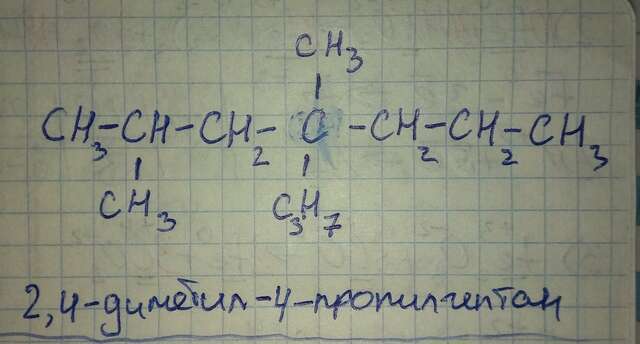 CH3
CH3-CH-CH2-C-CH2-CH2-CH3
CH3 C3H7
2,4-диметил-4-пропилгептан